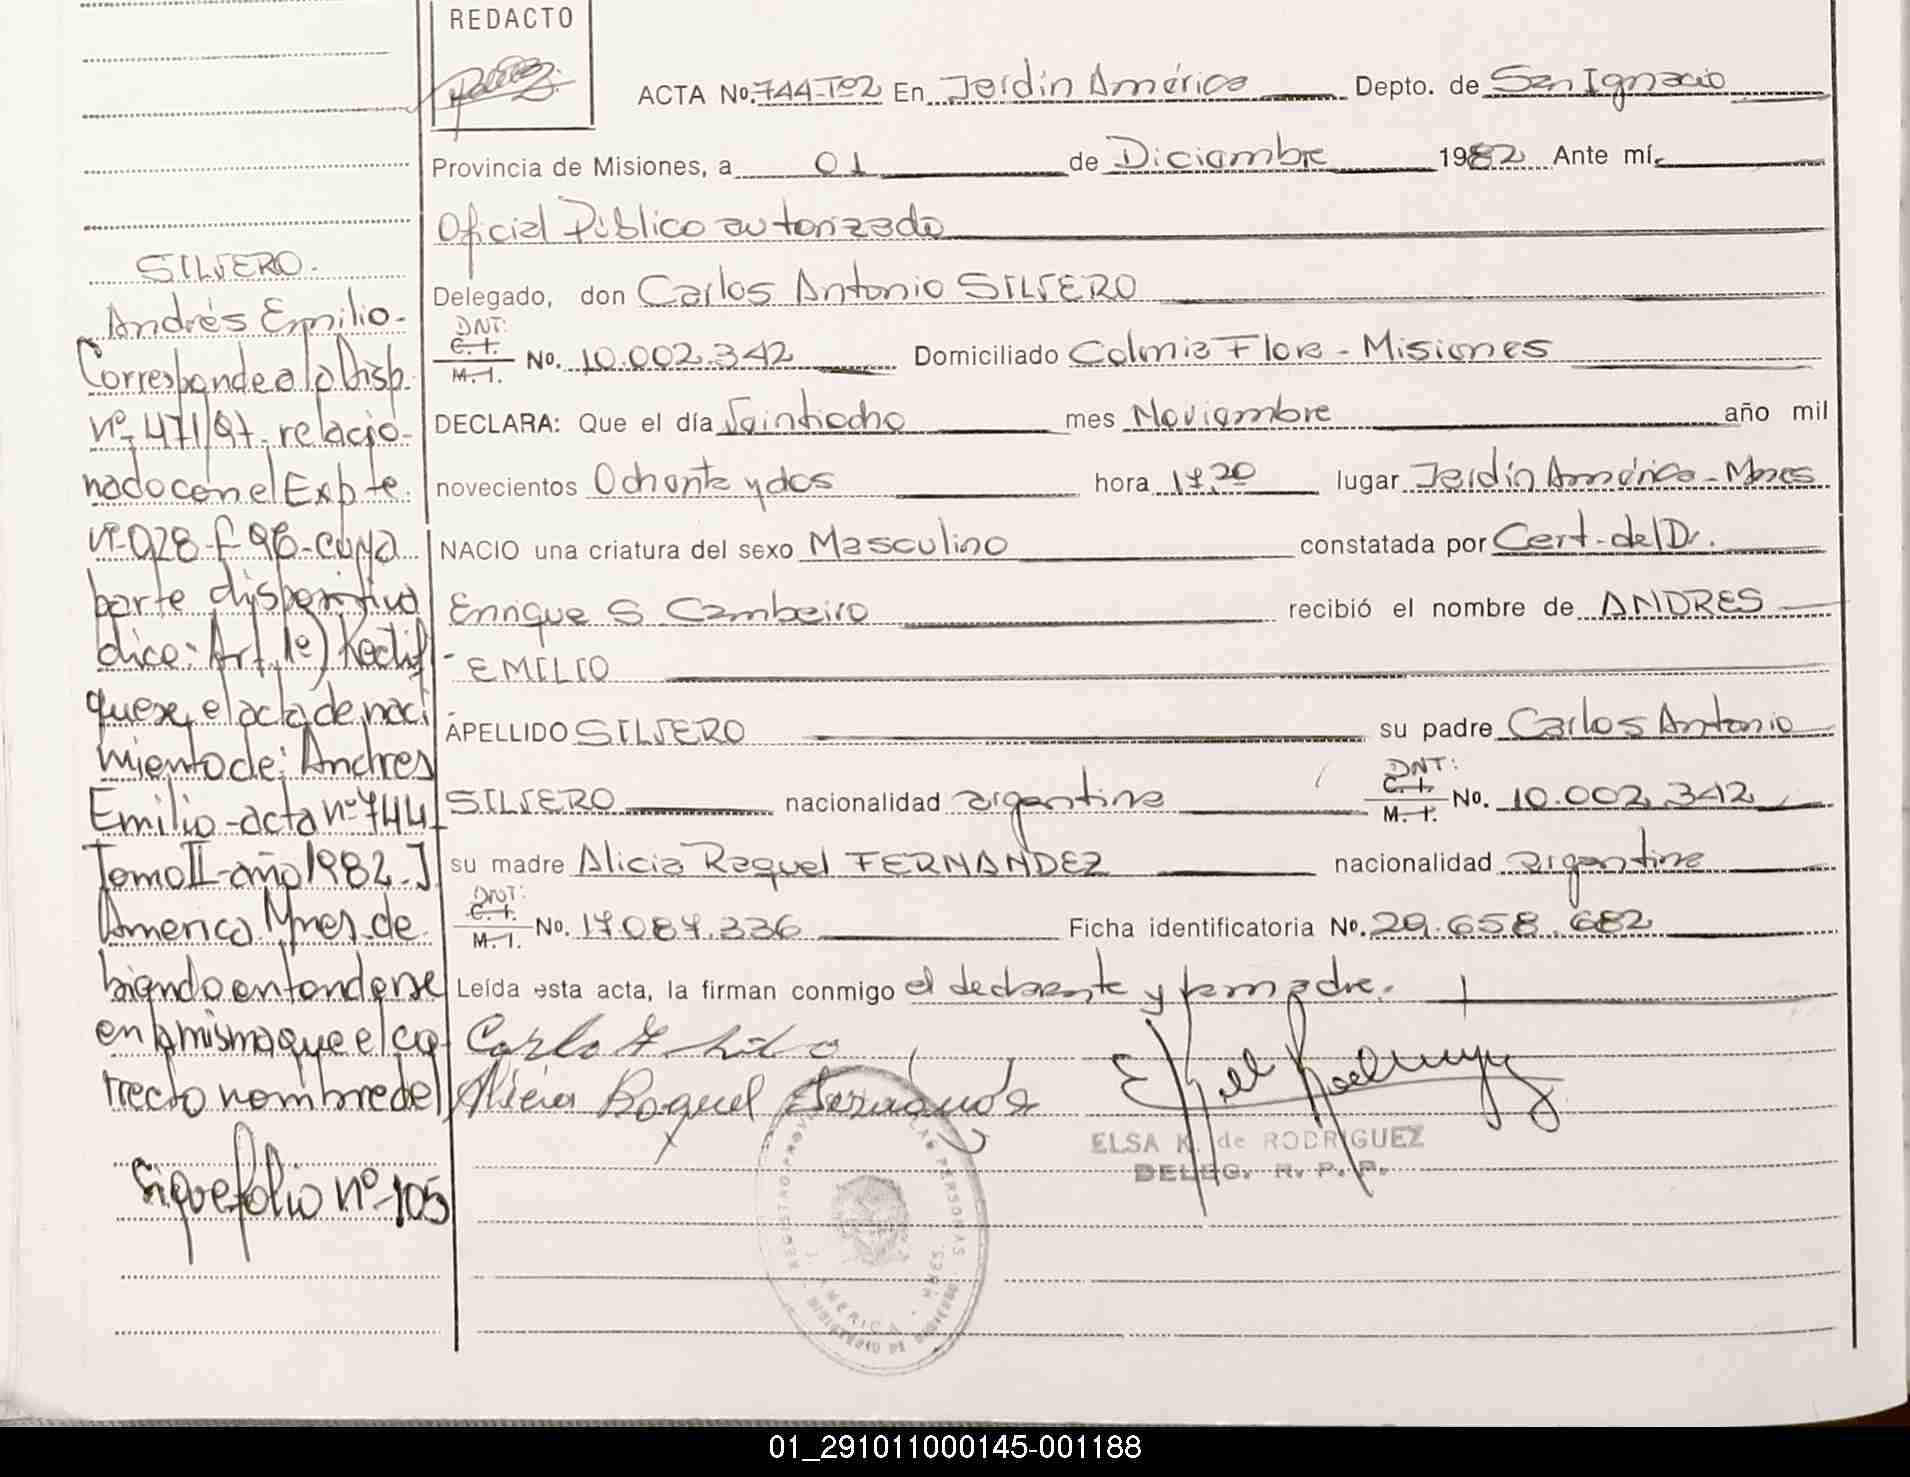 REDACTO
ACTA No. 744-To2 En Jardín América Depto. de San Ignacio
Provincia de Misiones, a 01 de Diciembre 1982 Ante mí
Oficial Público autorizado
Delegado, don Carlos Antonio SILVERO
DNI:
C. I.
M. I.
No. 10.002.342 Domiciliado Colonia Flora - Misiones
DECLARA: Que el día Veintiocho mes Noviembre año mil
novecientos Ochenta y dos hora 17,20 lugar Jardín América - Mnes
NACIO una criatura del sexo Masculino constatada por Cert. del Dr.
Enrique S. Cambeiro recibió el nombre de ANDRES
EMILIO
APELLIDO SILVERO su padre Carlos Antonio
SILVERO nacionalidad argentina
DNI:
C. I.
M. I.
No. 10.002.342
su madre Alicia Raquel FERNANDEZ nacionalidad argentina
DNI:
C. I.
M. I.
No. 17.087.336 Ficha identificatoria No. 29.658.682
Leída esta acta, la firman conmigo el declarante y la madre.
Alicia Raquel
ELSA K. de RODRIGUEZ
DELEG. R. P. P.
SILVERO.
Andrés Emilio-
Corresponde a la Disp.
nº 471/97. relacio-
nado con el Expte.
nº 928-F-96-cuya
parte dispositiva
dice: Art. 1º) Rectifí
quese, el acta de naci
miento de: Andres
Emilio-acta nº 744
Tomo II-año 1982. J.
America Mnes. de
biendo entenderse
en la misma que el co
rrecto nombre del
Sigue folio nº 105
01_291011000145-001188